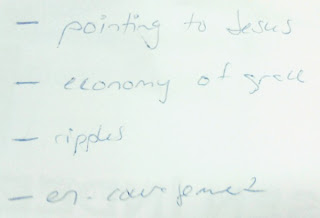 - pointing to Jesus
- economy of grace
- ripples
- en-couragement